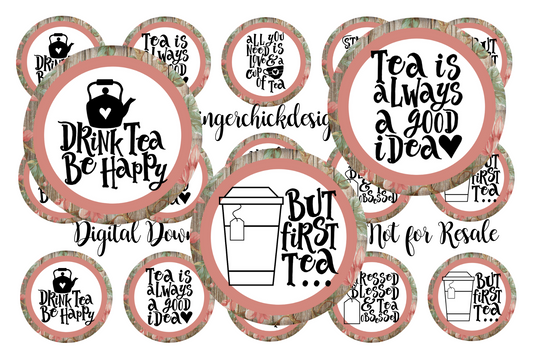 DRINK TEA
BE HAPPY
TEA IS
ALWAYS
A GOOD
IDEA
ALL YOU
NEED IS
LOVE & A
CUP OF TEA
TEA IS
ALWAYS
A GOOD
IDEA
DRINK TEA
BE HAPPY
ingerchickdesign
BUT
FIRST
TEA...
Digital Down
Not for Resale
DRINK TEA
BE HAPPY
TEA IS
ALWAYS
A GOOD
IDEA
BLESSED
& TEA
OBSESSED
BUT
FIRST
TEA...